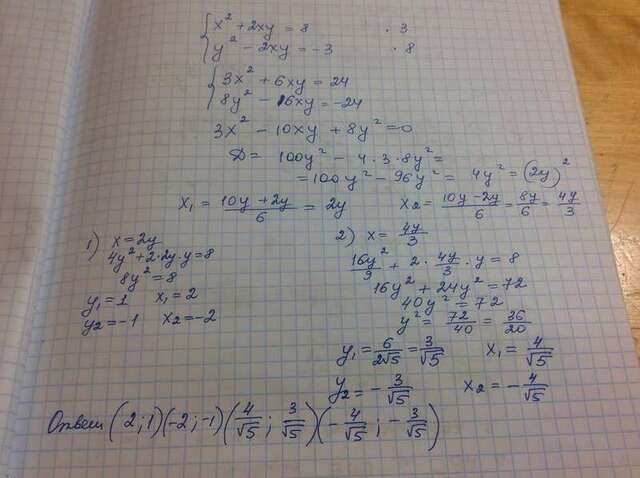 { x² + 2xy = 8 · 3
y² − 2xy = −3 · 8
{ 3x² + 6xy = 24
8y² − 16xy = −24
3x² − 10xy + 8y² = 0
D = 100y² − 4·3·8y² =
= 100y² − 96y² = 4y² = (2y)²
x₁ = (10y + 2y)/6 = 2y x₂ = (10y − 2y)/6 = 8y/6 = 4y/3
1) x = 2y
4y² + 2·2y·y = 8
8y² = 8
y₁ = 1 x₁ = 2
y₂ = −1 x₂ = −2
2) x = 4y/3
16y²/9 + 2 · 4y/3 · y = 8
16y² + 24y² = 72
40y² = 72
y² = 72/40 = 36/20
y₁ = 6/2√5 = 3/√5 x₁ = 4/√5
y₂ = −3/√5 x₂ = −4/√5
Ответ (2; 1)(−2; −1)(4/√5; 3/√5)(−4/√5; −3/√5)